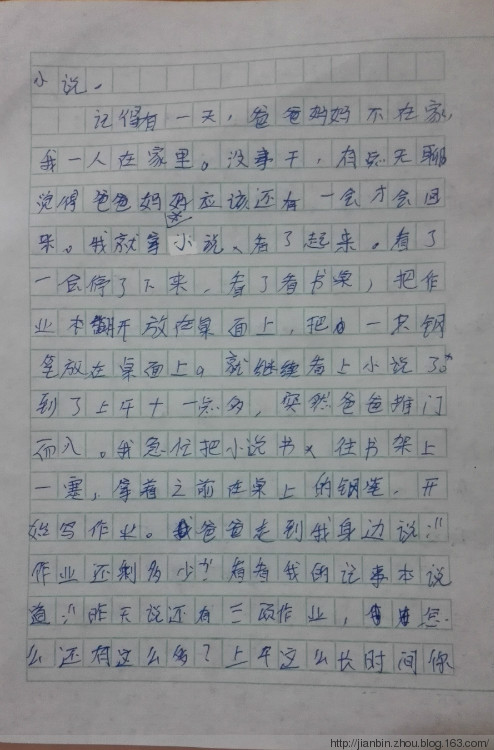 小说。
记得有一天，爸爸妈妈不在家，
我一人在家里。没事干，有点无聊
觉得爸爸妈妈应该还有一会才会回
来。我就拿小说、看了起来。看了
一会停了下来，看了看书桌，把作
业本翻开放在桌面上，把一只钢
笔放在桌面上。就继续看上小说了。
到了上午十一点多，突然爸爸推门
而入。我急忙把小说书往书架上
一塞，拿着之前在桌上的钢笔，开
始写作业。爸爸走到我身边说："
作业还剩多少"看看我的记事本说
道："昨天说还有三项作业，怎
么还有这么多？上午这么长时间你
http://jianbin.zhou.blog.163.com/